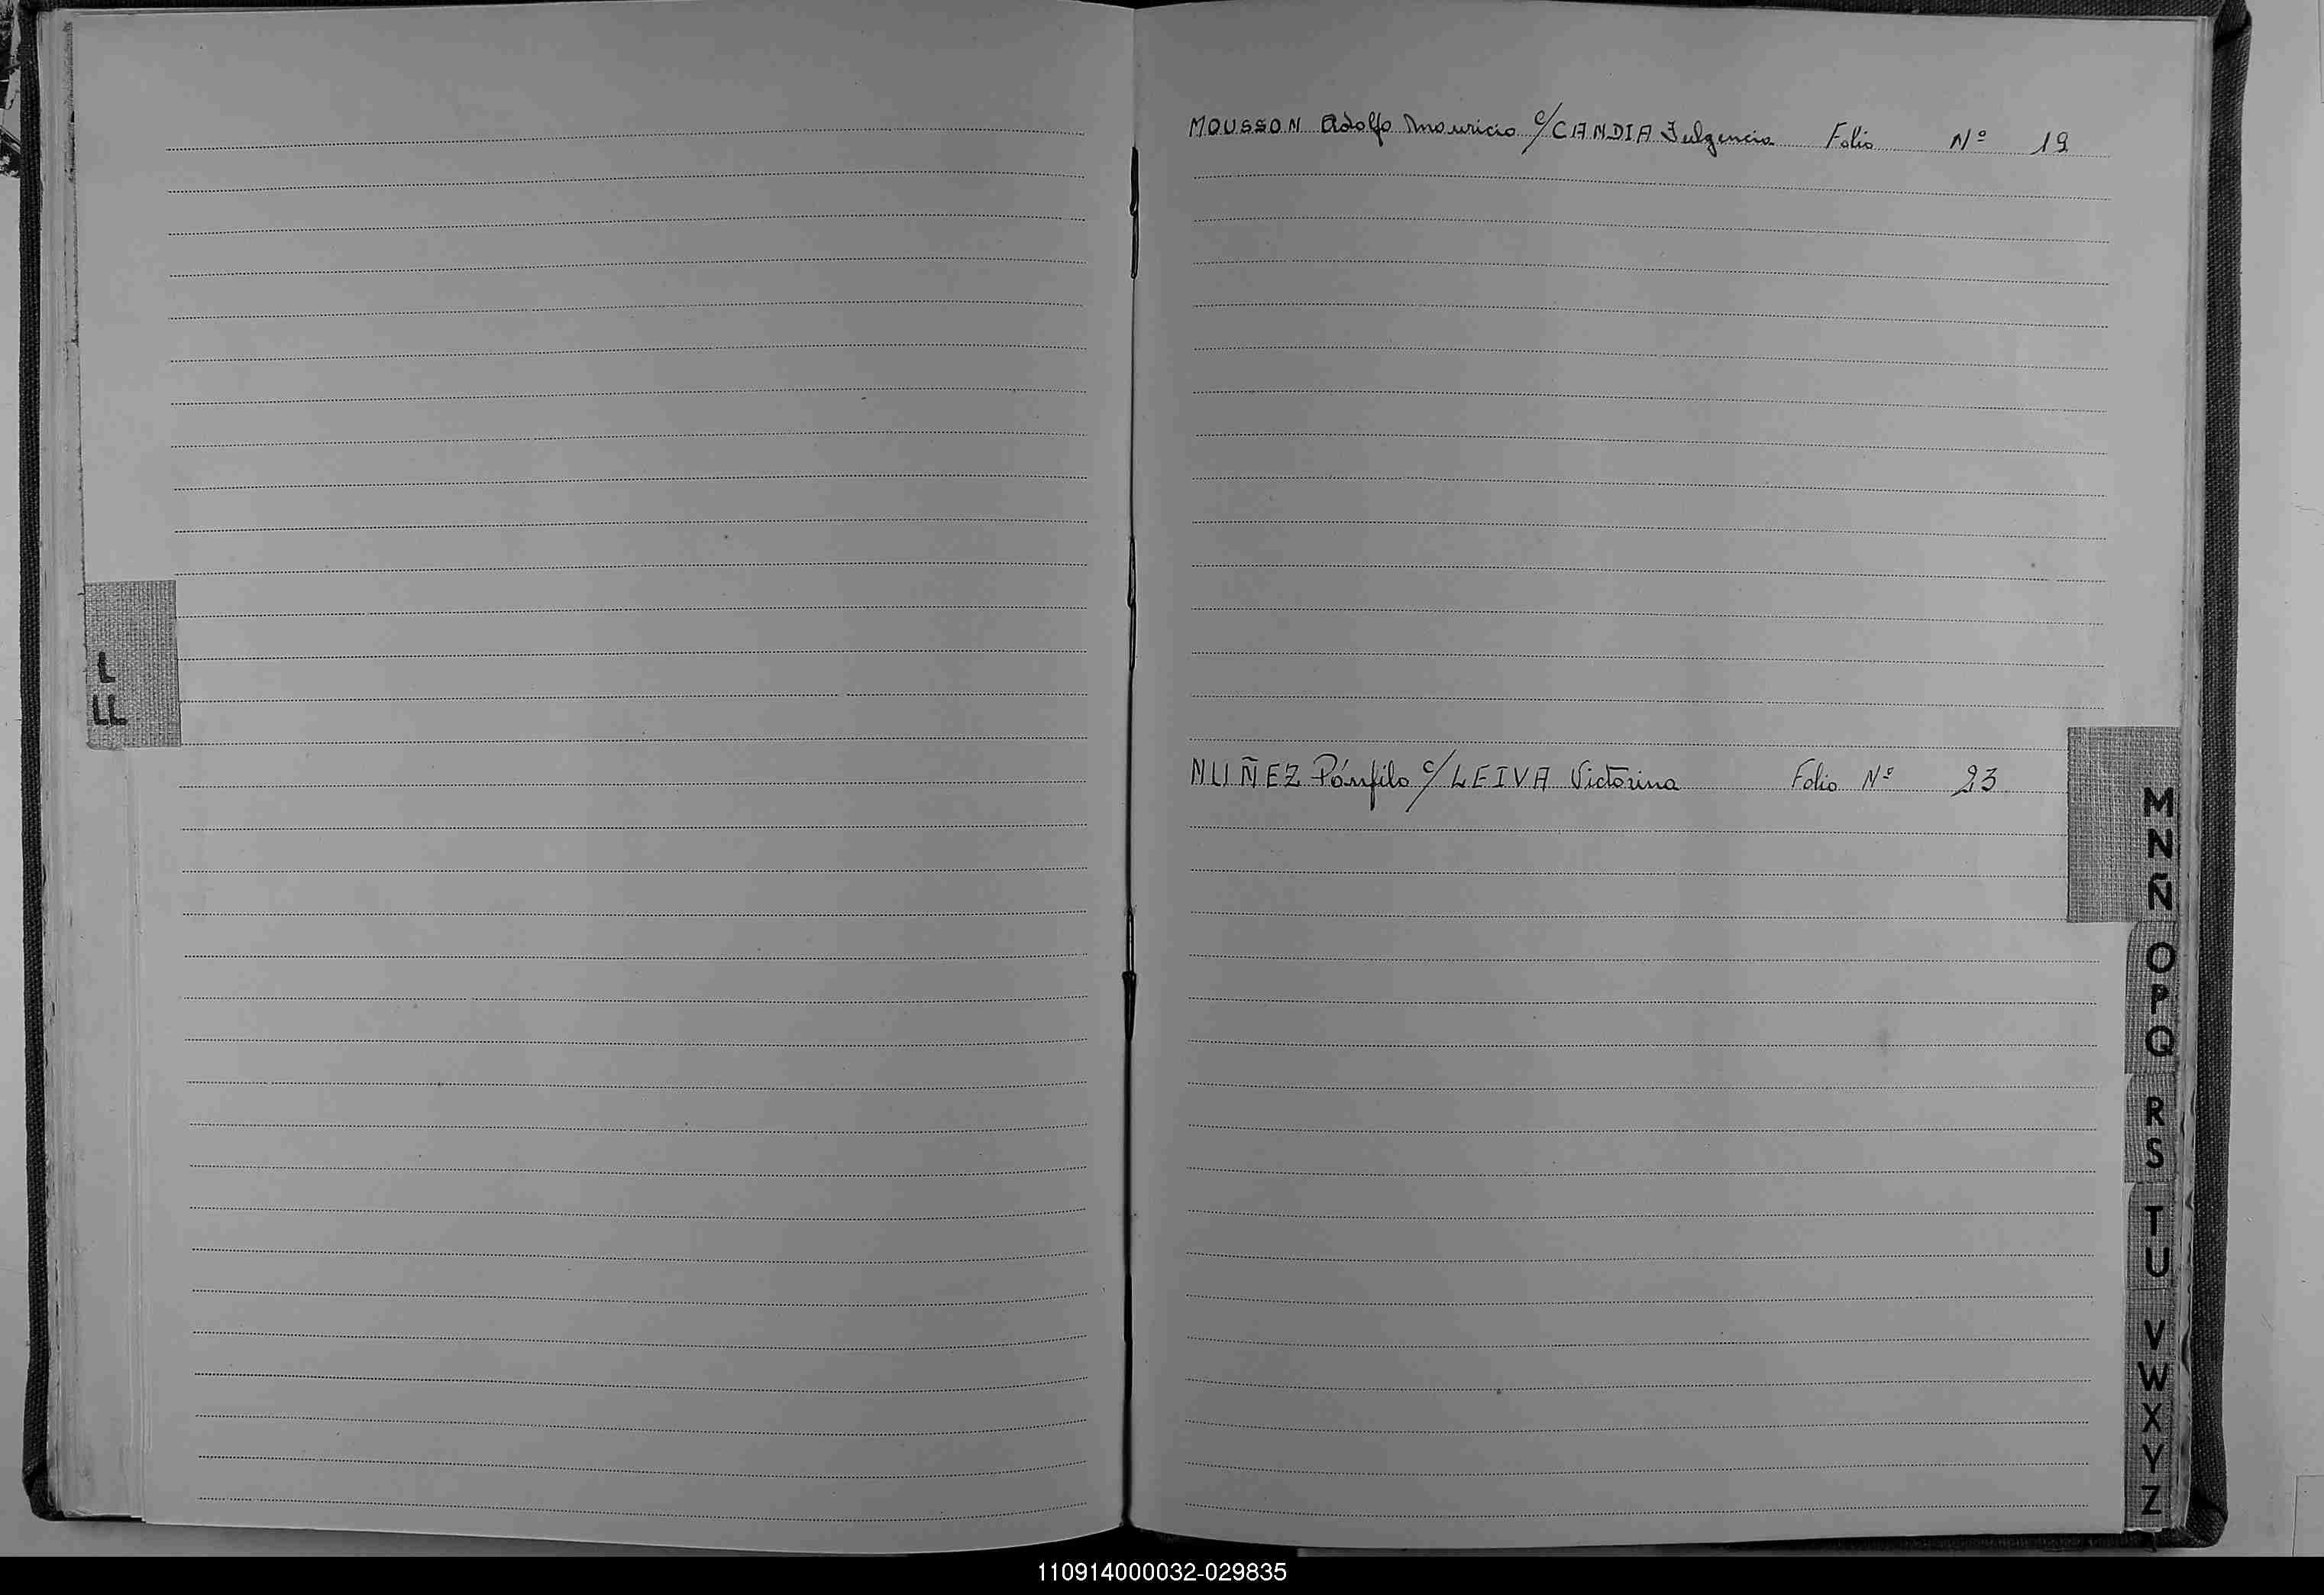 L
LL
MOUSSON Adolfo Mauricio c/ CANDIA Fulgencia Folio Nº 19
NUÑEZ Pánfilo c/ LEIVA Victorina Folio Nº 23
M
N
Ñ
O
P
Q
R
S
T
U
V
W
X
Y
Z
110914000032-029835